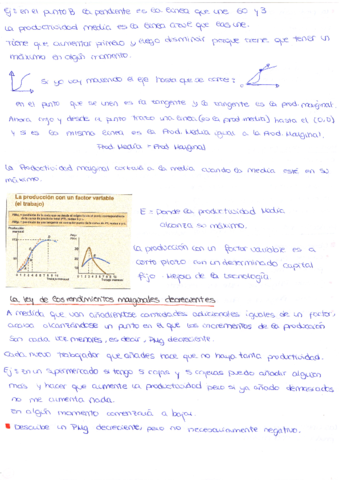 Ej: en el punto B la pendiente es la línea que une 60 y 3
La productividad media es la línea clave que las une.
Tiene que aumentar primero y luego disminuir porque tiene que tener un
máximo en algún momento.
Si yo voy moviendo el eje hasta que se corte:
en el punto que se unen es la tangente y la tangente es la Prod. marginal.
Ahora cojo y desde el punto trazo una línea (es la prod media) hasta el (0,0)
y si es la misma línea es la Prod. Media igual a la Prod. Marginal.
Prod. Media = Prod. Marginal
La Productividad marginal cortará a la media cuando la media esté en su
máximo.
La producción con un factor variable
(el trabajo)
E = Donde la productividad Media
alcanza su máximo.
La producción con un factor variable es a
corto plazo con un determinado capital
fijo. Mejora de la tecnología
La ley de los rendimientos marginales decrecientes
A medida que van añadiéndose cantidades adicionales iguales de un factor,
acaba alcanzándose un punto en el que los incrementos de la producción
son cada vez menores, es decir, PMg decreciente.
Cada nuevo trabajador que añades hace que no haya tanta productividad.
Ej: en un supermercado si tengo 5 cajas y 5 cajeras puedo añadir alguien
más y hacer que aumente la productividad pero si ya añado demasiados
no me aumenta nada.
En algún momento comenzará a bajar.
Describe un PMg decreciente pero no necesariamente negativo.